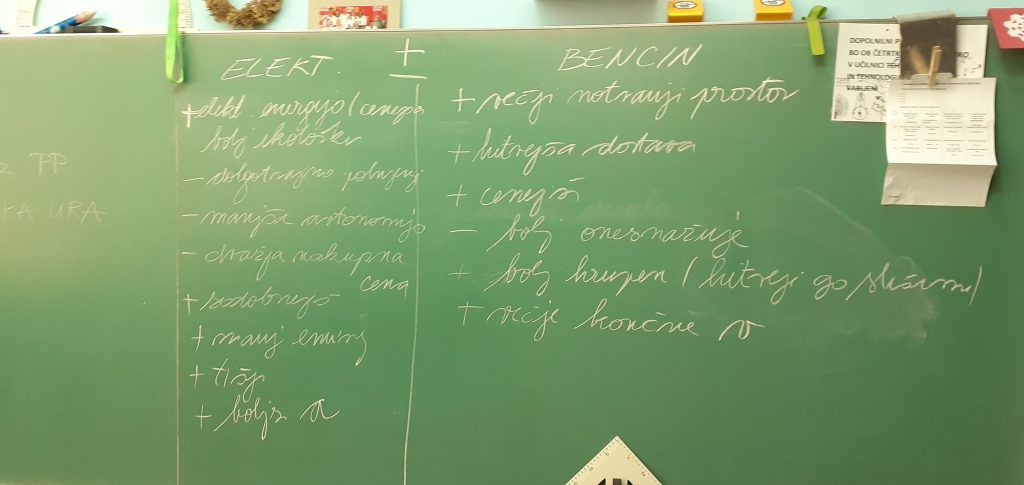 ELEKT.
+
-
BENCIN
+ elekt. energijo (cenejša
bolj ekološki
- dolgotrajno polnjenj
- manjša avtonomija
- dražja nakupna
cena
+ sodobnejš
+ manj emisij
+ tišji
+ boljš a
+ večji notranji prostor
+ hitrejša dostava
+ cenejši
- bolj onesnažuje
+ bolj hrupen (hitreji go slišimo)
+ večje končne v
PP
KA URA
DOPOLNILNI P
BO OB ČETRTK
V UČILNICI TEH
IN TEHNOLOGI
VABLJEN